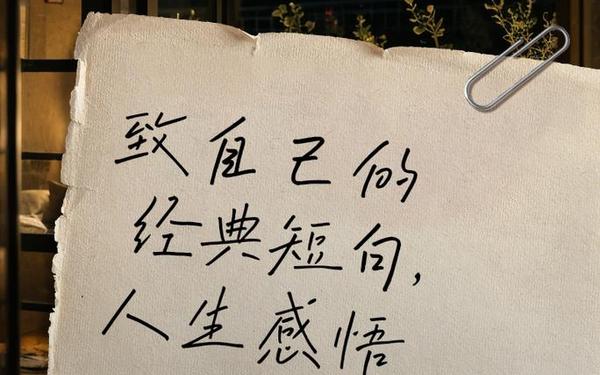 致自己的
经典短句,
人生感悟